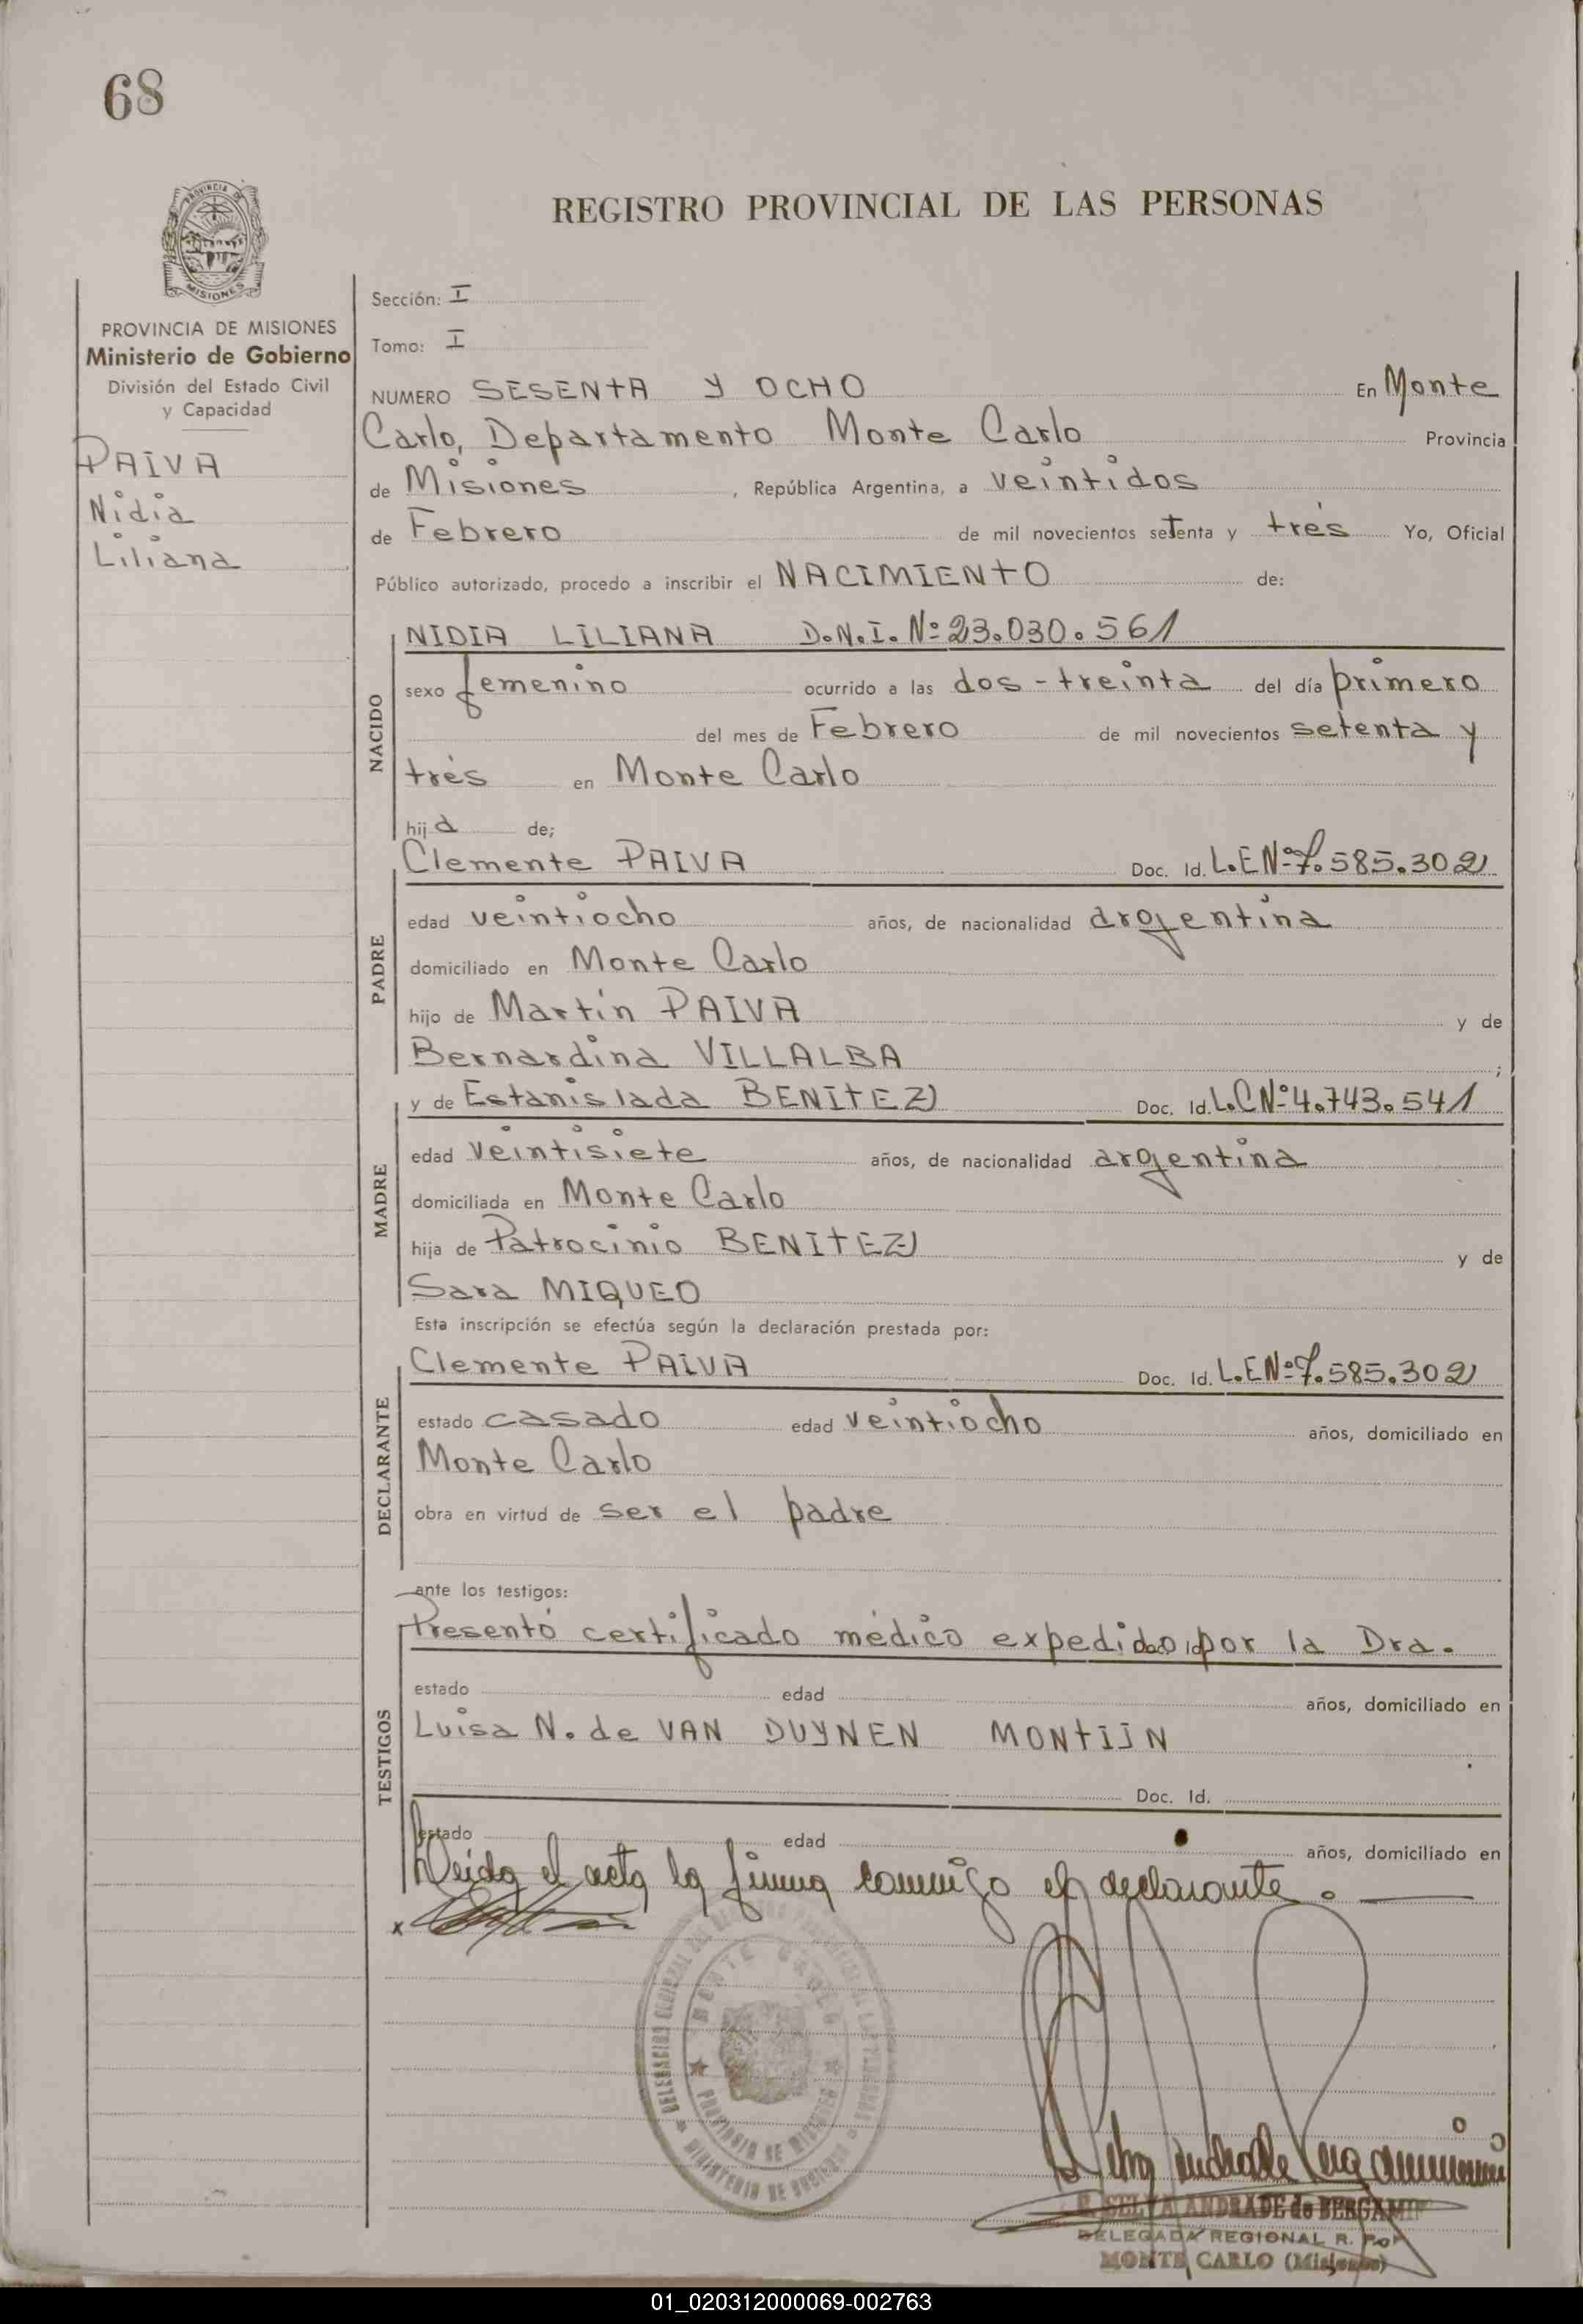 68
PROVINCIA DE
MISIONES
REGISTRO PROVINCIAL DE LAS PERSONAS
PROVINCIA DE MISIONES
Ministerio de Gobierno
División del Estado Civil
y Capacidad
PAIVA
Nidia
Liliana
Sección: I
Tomo: I
NUMERO SESENTA Y OCHO En Monte
Carlo, Departamento Monte Carlo Provincia
de Misiones, República Argentina, a veintidos
de Febrero de mil novecientos setenta y trés Yo, Oficial
Público autorizado, procedo a inscribir el NACIMIENTO de:
NACIDO
NIDIA LILIANA D.N.I. Nº 23.030.561
sexo femenino ocurrido a las dos-treinta del día primero
del mes de Febrero de mil novecientos setenta y
trés en Monte Carlo
hija de;
PADRE
Clemente PAIVA Doc. Id. L.E Nº 7.585.302
edad veintiocho años, de nacionalidad argentina
domiciliado en Monte Carlo
hijo de Martín PAIVA y de
Bernardina VILLALBA ;
MADRE
y de Estanislada BENITEZ Doc. Id. L.C Nº 4.743.541
edad veintisiete años, de nacionalidad argentina
domiciliada en Monte Carlo
hija de Patrocinio BENITEZ y de
Sara MIQUEO
Esta inscripción se efectúa según la declaración prestada por:
DECLARANTE
Clemente PAIVA Doc. Id. L.E Nº 7.585.302
estado casado edad veintiocho años, domiciliado en
Monte Carlo
obra en virtud de ser el padre
ante los testigos:
TESTIGOS
Presentó certificado médico expedido por la Dra.
estado edad años, domiciliado en
Luisa N. de VAN DUYNEN MONTIJN
Doc. Id.
estado edad años, domiciliado en
Leída el acta la firma conmigo el declarante.
x
DELEGACION REGIONAL DEL REGISTRO PROVINCIAL DE LAS PERSONAS
MONTE CARLO
PROVINCIA DE MISIONES
MINISTERIO DE GOBIERNO
SELVA ANDRADE de BERGAMI
DELEGADA REGIONAL R. P.
MONTE CARLO (Misiones)
01_020312000069-002763